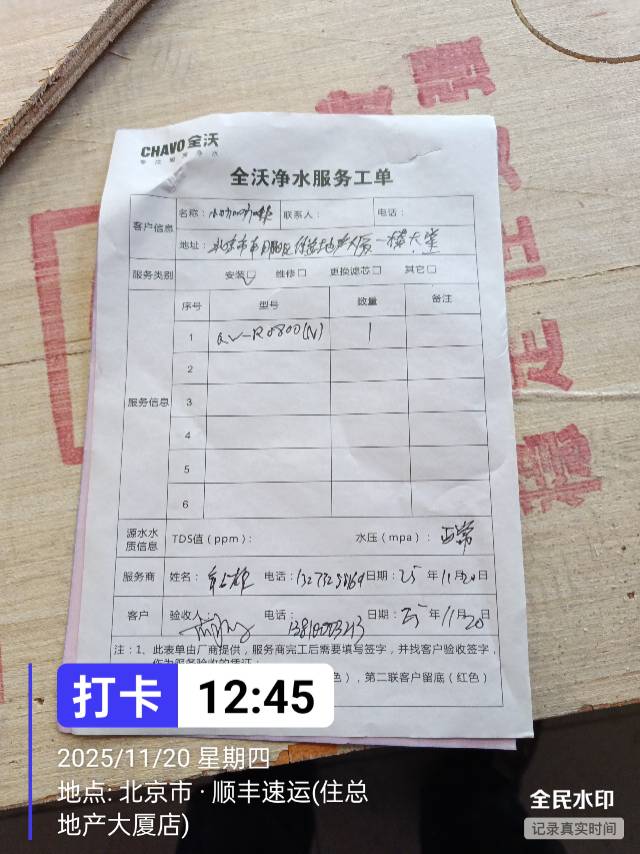 CHAVO 全沃
专注商用净水
全沃净水服务工单
客户信息 名称： 联系人： 电话：
地址：北京市 一楼大堂
服务类别 安装☑ 维修□ 更换滤芯□ 其它□
服务信息 序号 型号 数量 备注
1 QW-R0800(N) 1
2
3
4
5
6
源水水质信息 TDS值（ppm）： 水压（mpa）：正常
服务商 姓名： 电话： 日期：25年11月20日
客户 验收人： 电话： 日期：25年11月20日
注：1、此表单由厂商提供，服务商完工后需要填写签字，并找客户验收签字，
作为服务验收的凭证；
色），第二联客户留底（红色）
打卡 12:45
2025/11/20 星期四
地点: 北京市 · 顺丰速运(住总
地产大厦店)
全民水印
记录真实时间